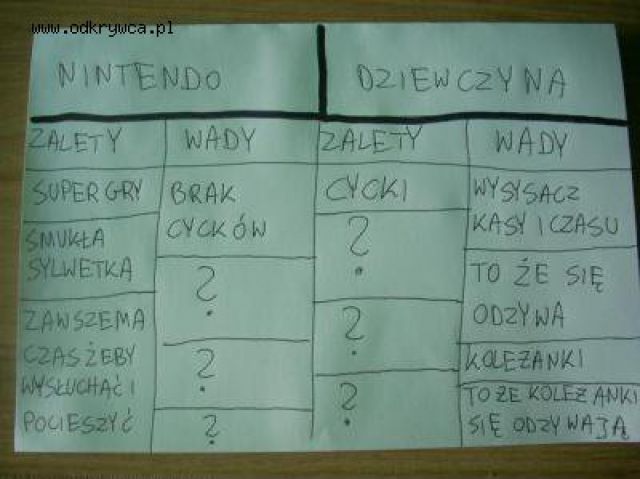 www.odkrywca.pl
NINTENDO
DZIEWCZYNA
ZALETY
WADY
ZALETY
WADY
SUPER GRY
SMUKŁA
SYLWETKA
ZAWSZE MA
CZAS ŻEBY
WYSŁUCHAĆ I
POCIESZYĆ
BRAK
CYCKÓW
?
?
?
CYCKI
?
?
?
WYSYSACZ
KASY I CZASU
TO ŻE SIĘ
ODZYWA
KOLEŻANKI
TO ŻE KOLEŻANKI
SIĘ ODZYWAJĄ